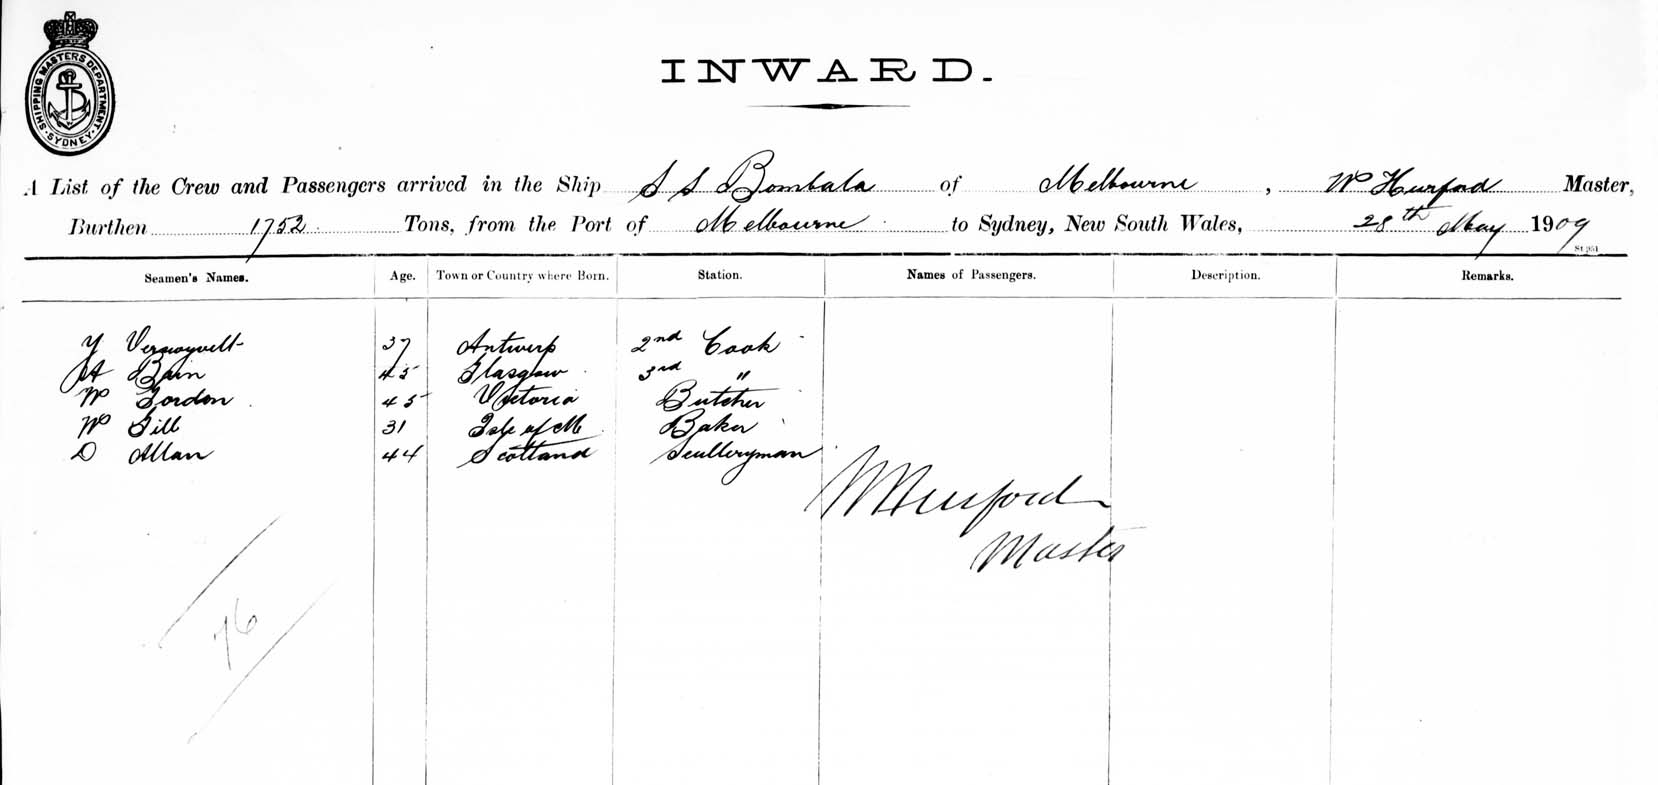 SHIPPING MASTERS DEPARTMENT. SYDNEY.
INWARD.
A List of the Crew and Passengers arrived in the Ship S S Bombala of Melbourne, Wm Hurford Master,
Burthen 1752 Tons, from the Port of Melbourne to Sydney, New South Wales, 28th May 1909
Seamen's Names. Age. Town or Country where Born. Station. Names of Passengers. Description. Remarks.
37 Antwerp 2nd Cook
Bain 45 Glasgow 3rd "
Wm Gordon 45 Victoria Butcher
Wm Gill 31 Isle of M Baker
D Allan 44 Scotland Sculleryman
W Hurford
Master
76